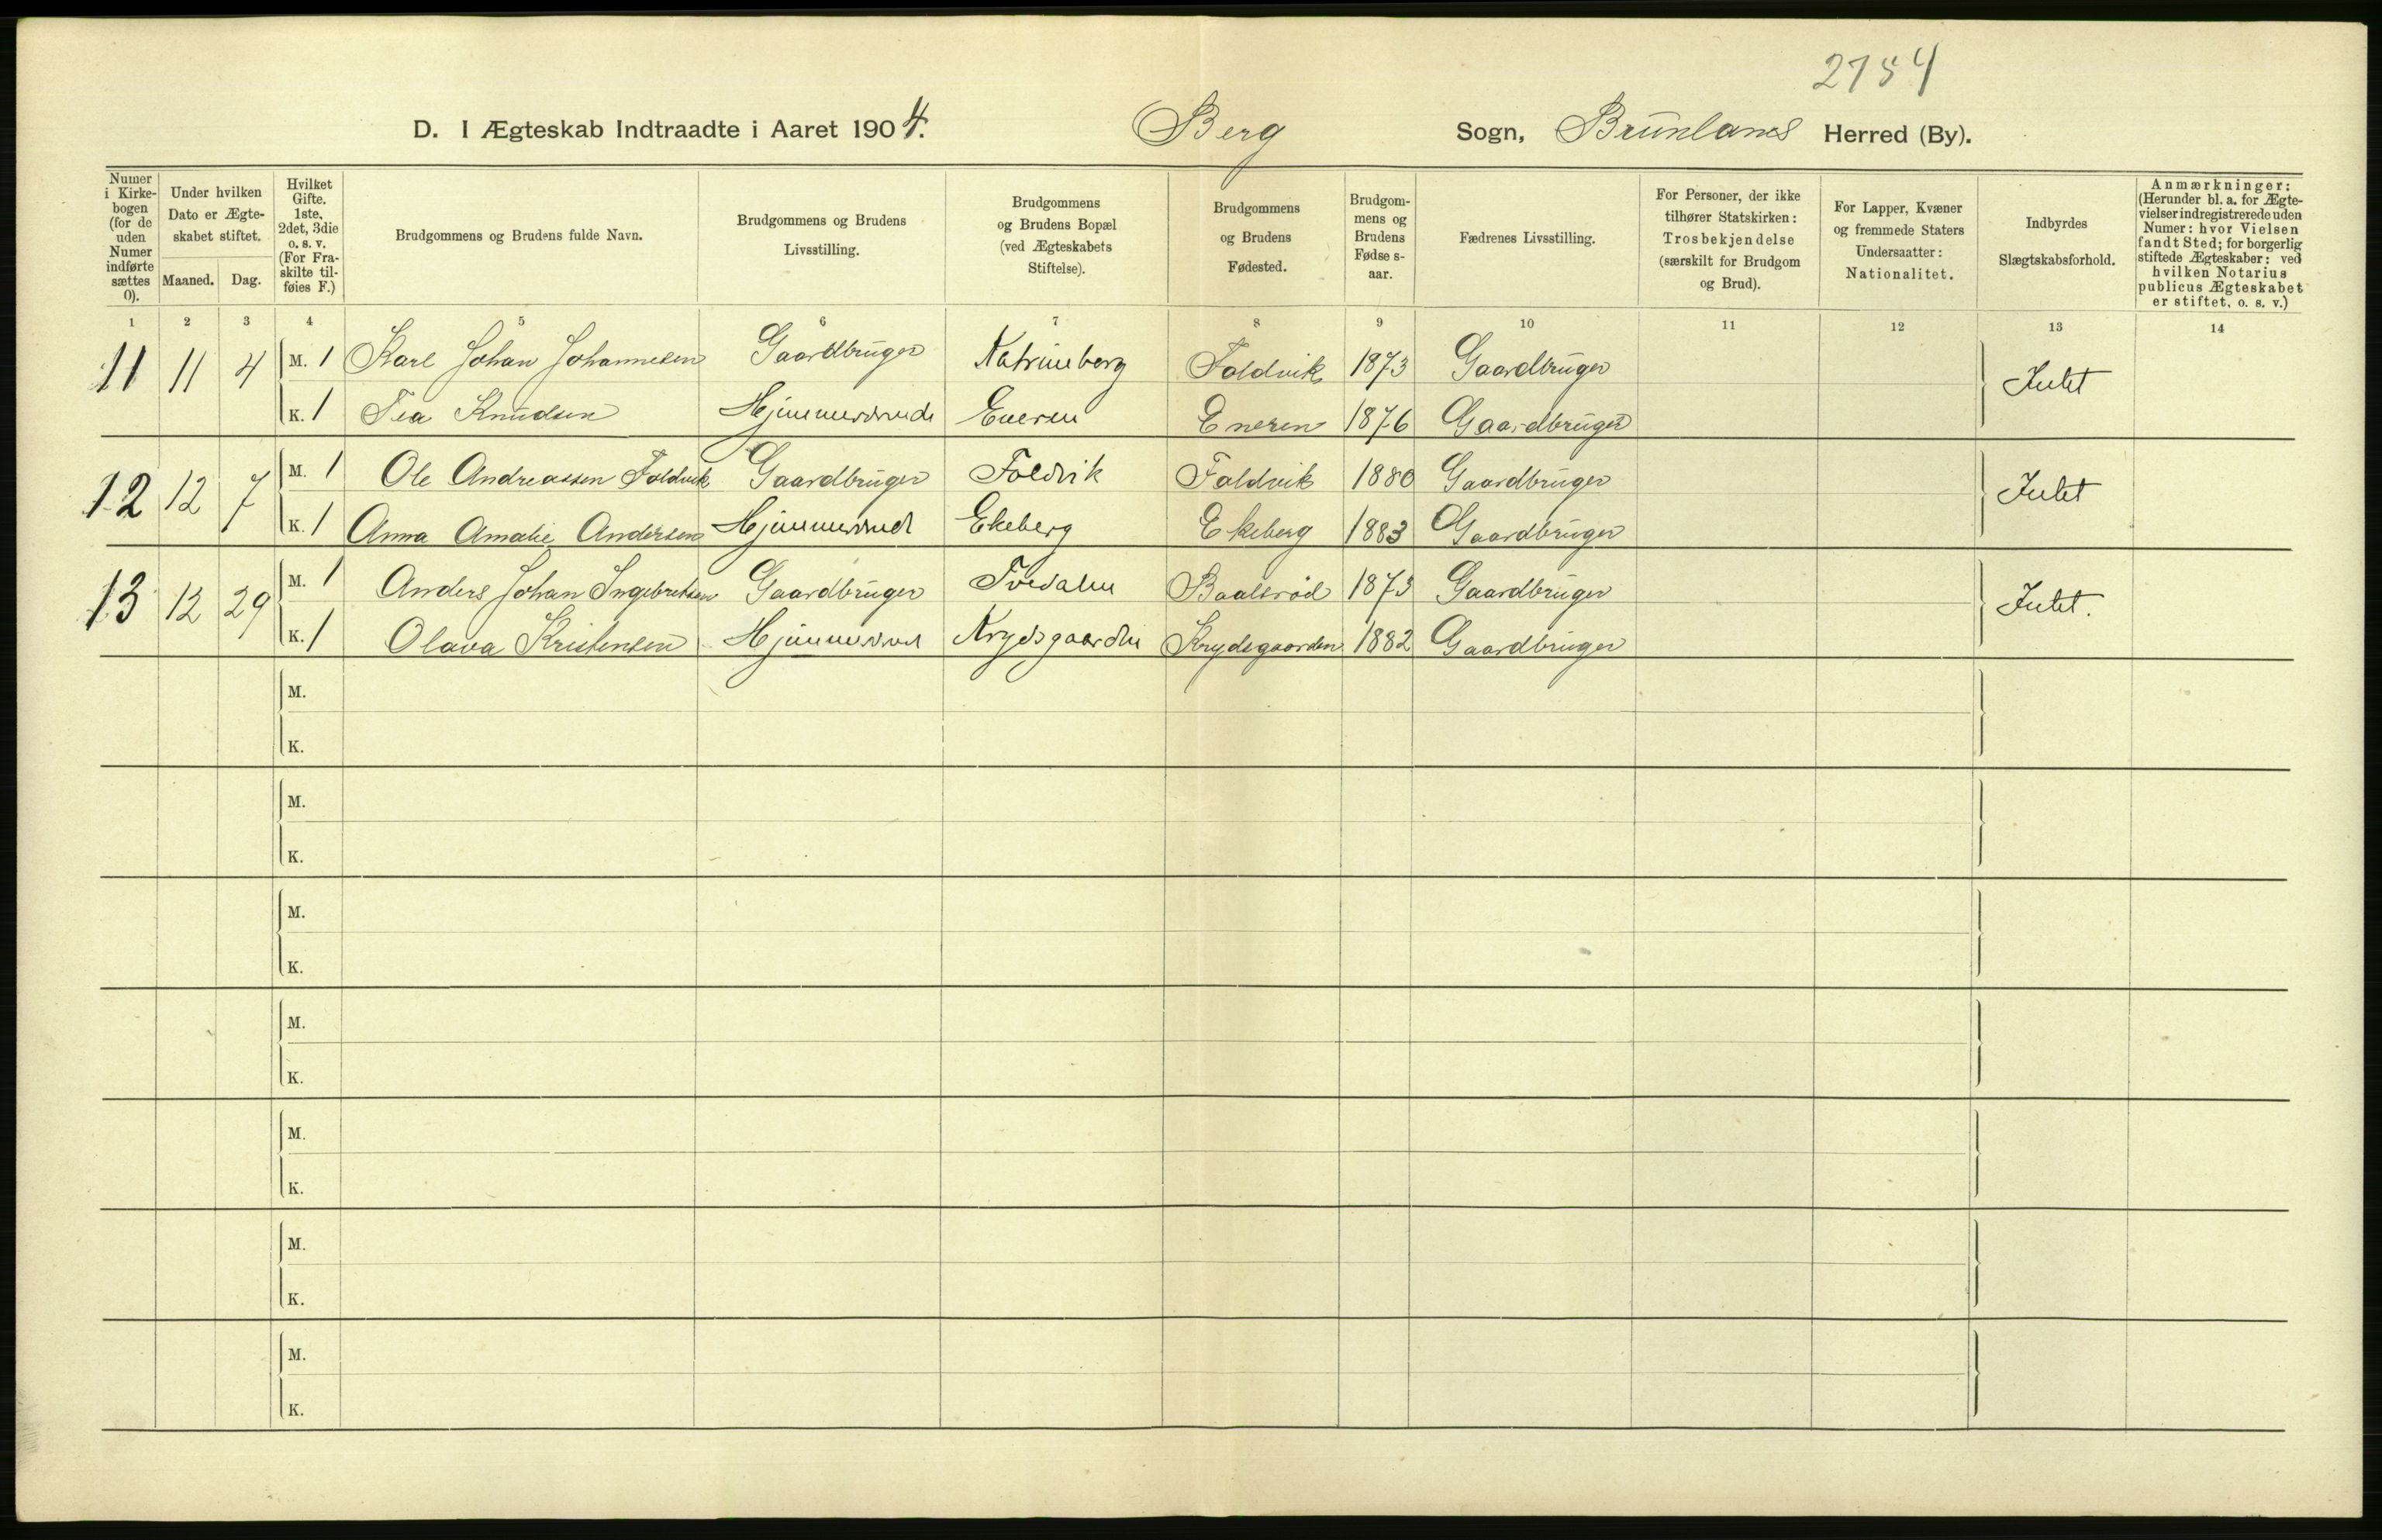 2754
D. I Ægteskab Indtraadte i Aaret 1904. Berg Sogn, Brunlanes Herred (By).
Numer i Kirke-bogen (for de uden Numer indførte sættes 0).
Under hvilken Dato er Ægte-skabet stiftet.
Maaned. Dag.
Hvilket Gifte. 1ste, 2det, 3die o. s. v. (For Fra-skilte til-føies F.)
Brudgommens og Brudens fulde Navn.
Brudgommens og Brudens Livsstilling.
Brudgommens og Brudens Bopæl (ved Ægteskabets Stiftelse).
Brudgommens og Brudens Fødested.
Brudgom-mens og Brudens Fødse s-aar.
Fædrenes Livsstilling.
For Personer, der ikke tilhører Statskirken: Trosbekjendelse (særskilt for Brudgom og Brud).
For Lapper, Kvæner og fremmede Staters Undersaatter: Nationalitet.
Indbyrdes Slægtskabsforhold.
Anmærkninger: (Herunder bl. a. for Ægte-vielser indregistrerede uden Numer: hvor Vielsen fandt Sted; for borgerlig stiftede Ægteskaber: ved hvilken Notarius publicus Ægteskabet er stiftet, o. s. v.)
1 2 3 4 5 6 7 8 9 10 11 12 13 14
11 11 4 M. 1 Karl Johan Johannesen Gaardbruger Katrineberg Foldvik 1873 Gaardbruger Intet
K. 1 Tea Knudsen Hjemmeværende Eneren Eneren 1876 Gaardbruger
12 12 7 M. 1 Ole Andreassen Foldvik Gaardbruger Foldvik Foldvik 1880 Gaardbruger Intet
K. 1 Anna Amalie Andersen Hjemmevænd Ekeberg Ekeberg 1883 Gaardbruger
13 12 29 M. 1 Anders Johan Ingebretsen Gaardbruger Tvedalen Baalsrød 1873 Gaardbruger Intet.
K. 1 Olava Kristensen Hjemmevænd Krydsgaarden Krydsgaarden 1882 Gaardbruger
M.
K.
M.
K.
M.
K.
M.
K.
M.
K.
M.
K.
M.
K.